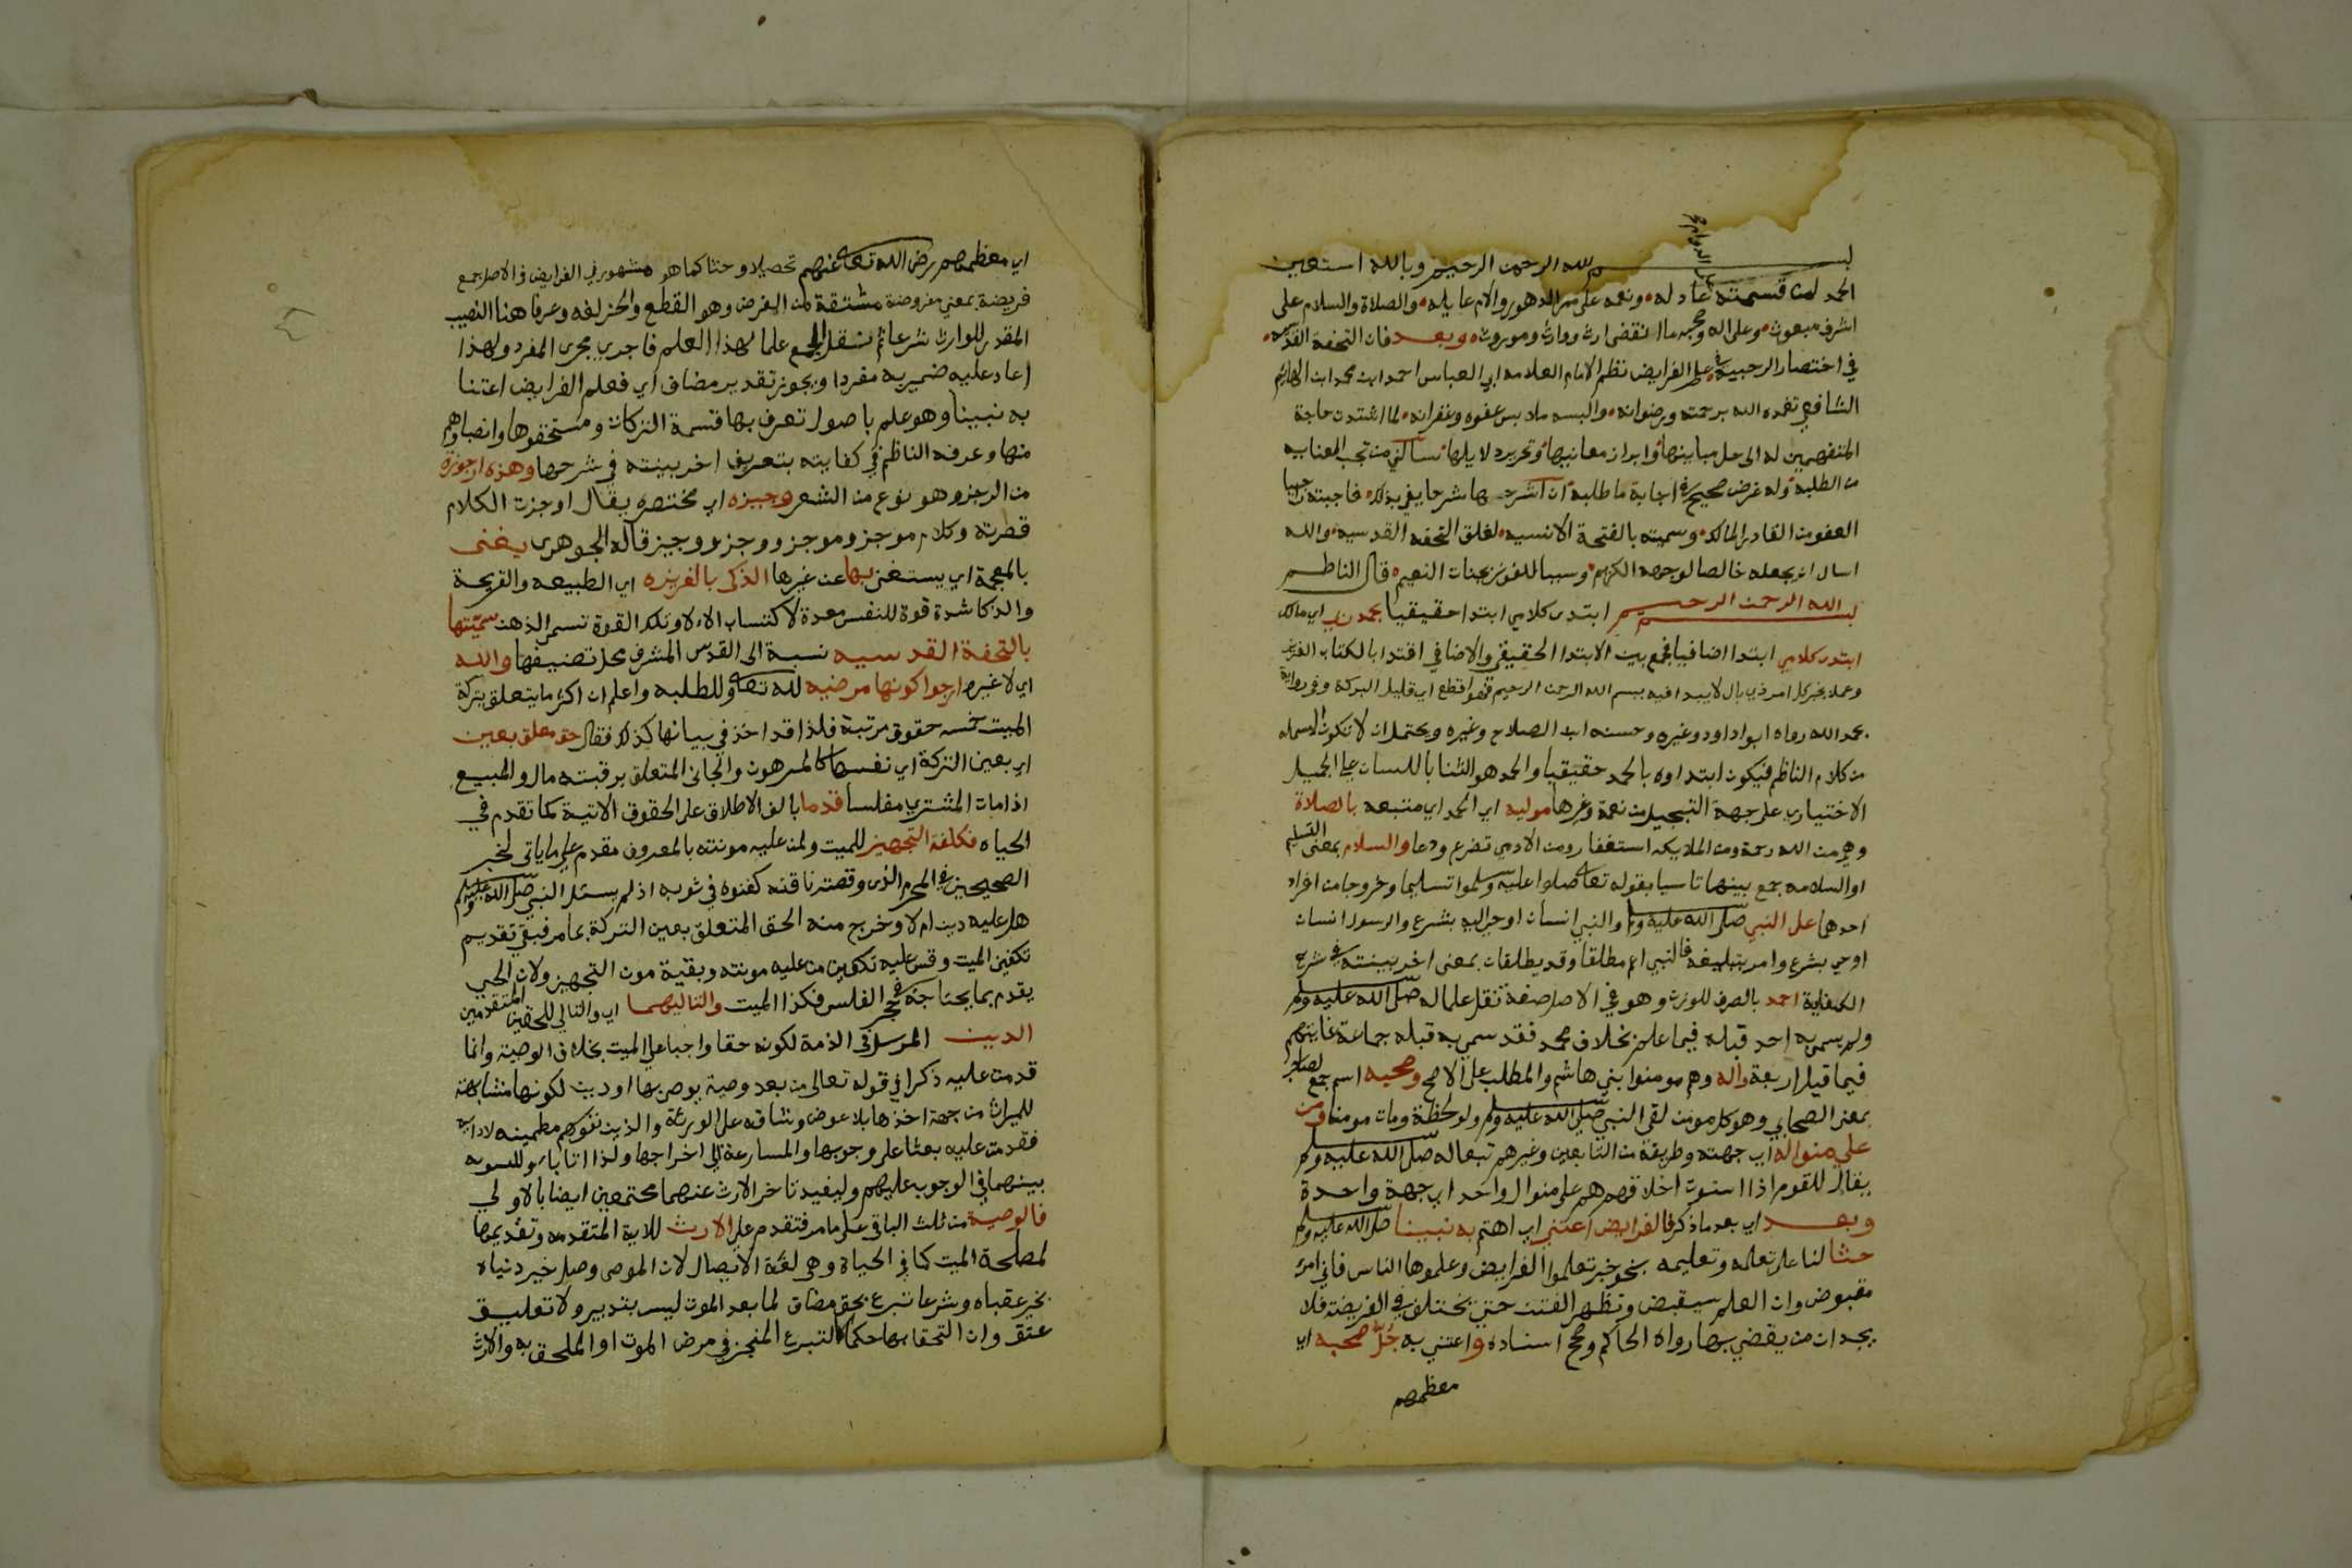 بسم الله الرحمن الرحيم وبالله استعين
الحمد لمن قسمته عادله ونعمه على مر الدهور والام عايله والصلاة والسلام على
اشرف مبعوث وعلى اله وصحبه ما انقضى ارث ووارث وموروث وبعد فان التحفة القدسيه
في اختصار الرحبية في علم الفرايض نظم الامام العلامه ابي العباس احمد ابن محمد ابن الهايم
الشافعي تغمده الله برحمته ورضوانه والبسه ملابس عفوه وغفرانه لما اشتدت حاجة
المتفهمين له الى حل مبانيها وابراز معانيها وتحرير دلايلها سالني من تجب العنايه
من الطلبة وله غرض صحيح في اجابة ما طلبه ان اشرحها شرحا يفي بذلك فاجبته راجيا
العفو من القادر المالك وسميته بالفتحة الانسيه لغلق التحفه القدسيه والله
اسال ان يجعله خالصا لوجهه الكريم وسببا للفوز بجنات النعيم قال الناظم
بسم الله الرحمن الرحيم ابتدى كلامي ابتدا حقيقيا بحمد ربي اي مالكي
ابتدى كلامي ابتدا اضافيا فجمع بين الابتدا الحقيقي والاضافي اقتدا بالكتاب العزيز
وعملا بخبر كل امر ذي بال لا يبدا فيه ببسم الله الرحمن الرحيم فهو اقطع اي قليل البركة وفي رواية
بحمد الله رواه ابو اداود وغيره وحسنه ابن الصلاح وغيره ويحتمل ان لا تكون البسمله
من كلام الناظم فيكون ابتداوه بالحمد حقيقيا والحمد هو الثنا باللسان على الجميل
الاختياري على جهة التبجيل من نعمة وغيرها موليه اي الحمد اي متبعه بالصلاة
وهي من الله رحمة ومن الملايكه استغفار ومن الادمي تضرع ودعا والسلام بمعنى التسليم
او السلامه جمع بينهما تاسيا بقوله تعالى صلوا عليه وسلموا تسليما وخروجا من افراد
احدهما على النبي صلى الله عليه وسلم والنبي انسان اوحي اليه بشرع والرسول انسان
اوحي بشرع وامر بتبليغه فالنبي اعم مطلقا وقد يطلقان بمعنى اخر بينته في شرح
الكفاية احمد بالصرف للوزن وهو في الاصل صفة نقل علما له صلى الله عليه وسلم
ولم يسم به احد قبله فيما علم بخلاف محمد فقد سمي به قبله جماعة غايتهم
فيما قيل اربعة واله وهم مومنوا بني هاشم والمطلب على الاصح وصحبه اسم جمع لصاحب
بمعنى الصحابي وهو كل مومن لقي النبي صلى الله عليه وسلم ولو لحظة ومات مومنا ومن
على منواله اي جهته وطريقة من التابعين وغيرهم تبعا له صلى الله عليه وسلم
يقال للقوم اذا استوت اخلاقهم هم على منوال واحد اي جهة واحدة
وبعد اي بعد ما ذكر فالفرايض اعتنى اي اهتم به نبينا صلى الله عليه وسلم
حثا لنا على تعلمه وتعليمه بنحو خبر تعلموا الفرايض وعلموها الناس فاني امرء
مقبوض وان العلم سيقبض وتظهر الفتن حتى يختلف في الفريضة فلا
يجدان من يقضي بها رواه الحاكم وصح اسناده واعتني به جل صحبه اي
معظمهم
اي معظمهم رضي الله تعالى عنهم تحصيلا وحثا كما هو مشهور في الفرايض في الاصل جمع
فريضة بمعنى مفروضة مشتقة من الفرض وهو القطع والحز لغه وعرفا هنا النصيب
المقدر للوارث شرعا ثم نقل الجمع علما لهذا العلم فاجري مجرى المفرد ولهذا
اعاد عليه ضميره مفردا ويجوز تقدير مضاف اي فعلم الفرايض اعتنا
به نبينا وهو علم باصول تعرف بها قسمة التركات ومستحقوها وانصباوهم
منها وعرفه الناظم في كفايته بتعريف اخر بينته في شرحها وهذه ارجوزه
من الرجز وهو نوع من الشعر وجيزه اي مختصره يقال اوجزت الكلام
قصرته وكلام موجز وموجز ووجز ووجيز قاله الجوهرى يغنى
بالمعجمة اي يستغنى بها عن غيرها الذكى بالغريزه اي الطبيعه والقريحة
والذكا شدة قوة للنفس معدة لاكتساب الاراء وتلك القوة تسمى الذهن سميتها
بالتحفة القدسيه نسبة الى القدس المشرف محل تصنيفها والله
اي لا غيره ارجوا كونها مرضيه لله تعالى وللطلبه واعلم ان اكثر ما يتعلق بتركة
الميت خمسه حقوق مرتبة فلذا قد اخذ في بيانها كذلك فقال حق معلق بعين
اي بعين التركة اي نفسها كالمرهون والجاني المتعلق برقبته مال والمبيع
اذا مات المشتري مفلسا قدما بالف الاطلاق على الحقوق الاتية كما تقدم في
الحياه فكلفة التجهيز للميت ولمن عليه مونته بالمعروف مقدم على ما ياتى لخبر
الصحيحين في المحرم الذى وقصته ناقته كفنوه في ثوبه اذ لم يسئل النبي صلى الله عليه وسلم
هل عليه دين ام لا وخرج منه الحق المتعلق بعين التركة بما مر فبقي تقديم
تكفين الميت وقس عليه تكفين من عليه مونته وبقية مون التجهيز ولان الحي
يقدم بما يحتاجه في حجر الفلس فكذا الميت والتاليهما اي والتالي للحقين المتقدمين
الدين المرسل في الذمة لكونه حقا واجبا على الميت بخلاف الوصية وانما
قدمت عليه ذكرا في قوله تعالى من بعد وصية يوصى بها او دين لكونها مشابهة
للميراث من جهة اخذها بلا عوض وشاقه على الورثة والدين نفوسهم مطمينه لادايه
فقدمت عليه بعثا على وجوبها والمسارعة الى اخراجها ولذا اتا باو للتسويه
بينهما في الوجوب عليهم وليفيد تاخر الارث عنهما مجتمعين ايضا بالاولي
فالوصية من ثلث الباقي على ما مر فتقدم على الارث للاية المتقدمه وتقديمها
لمصلحة الميت كما في الحياة وهي لغة الايصال لان الموصى وصل خير دنياه
بخير عقباه وشرعا تبرع بحق مضاف لما بعد الموت ليس بتدبير ولا تعليق
عتق وان التحقا بها حكما كالتبرع المنجز في مرض الموت او الملحق به والارث